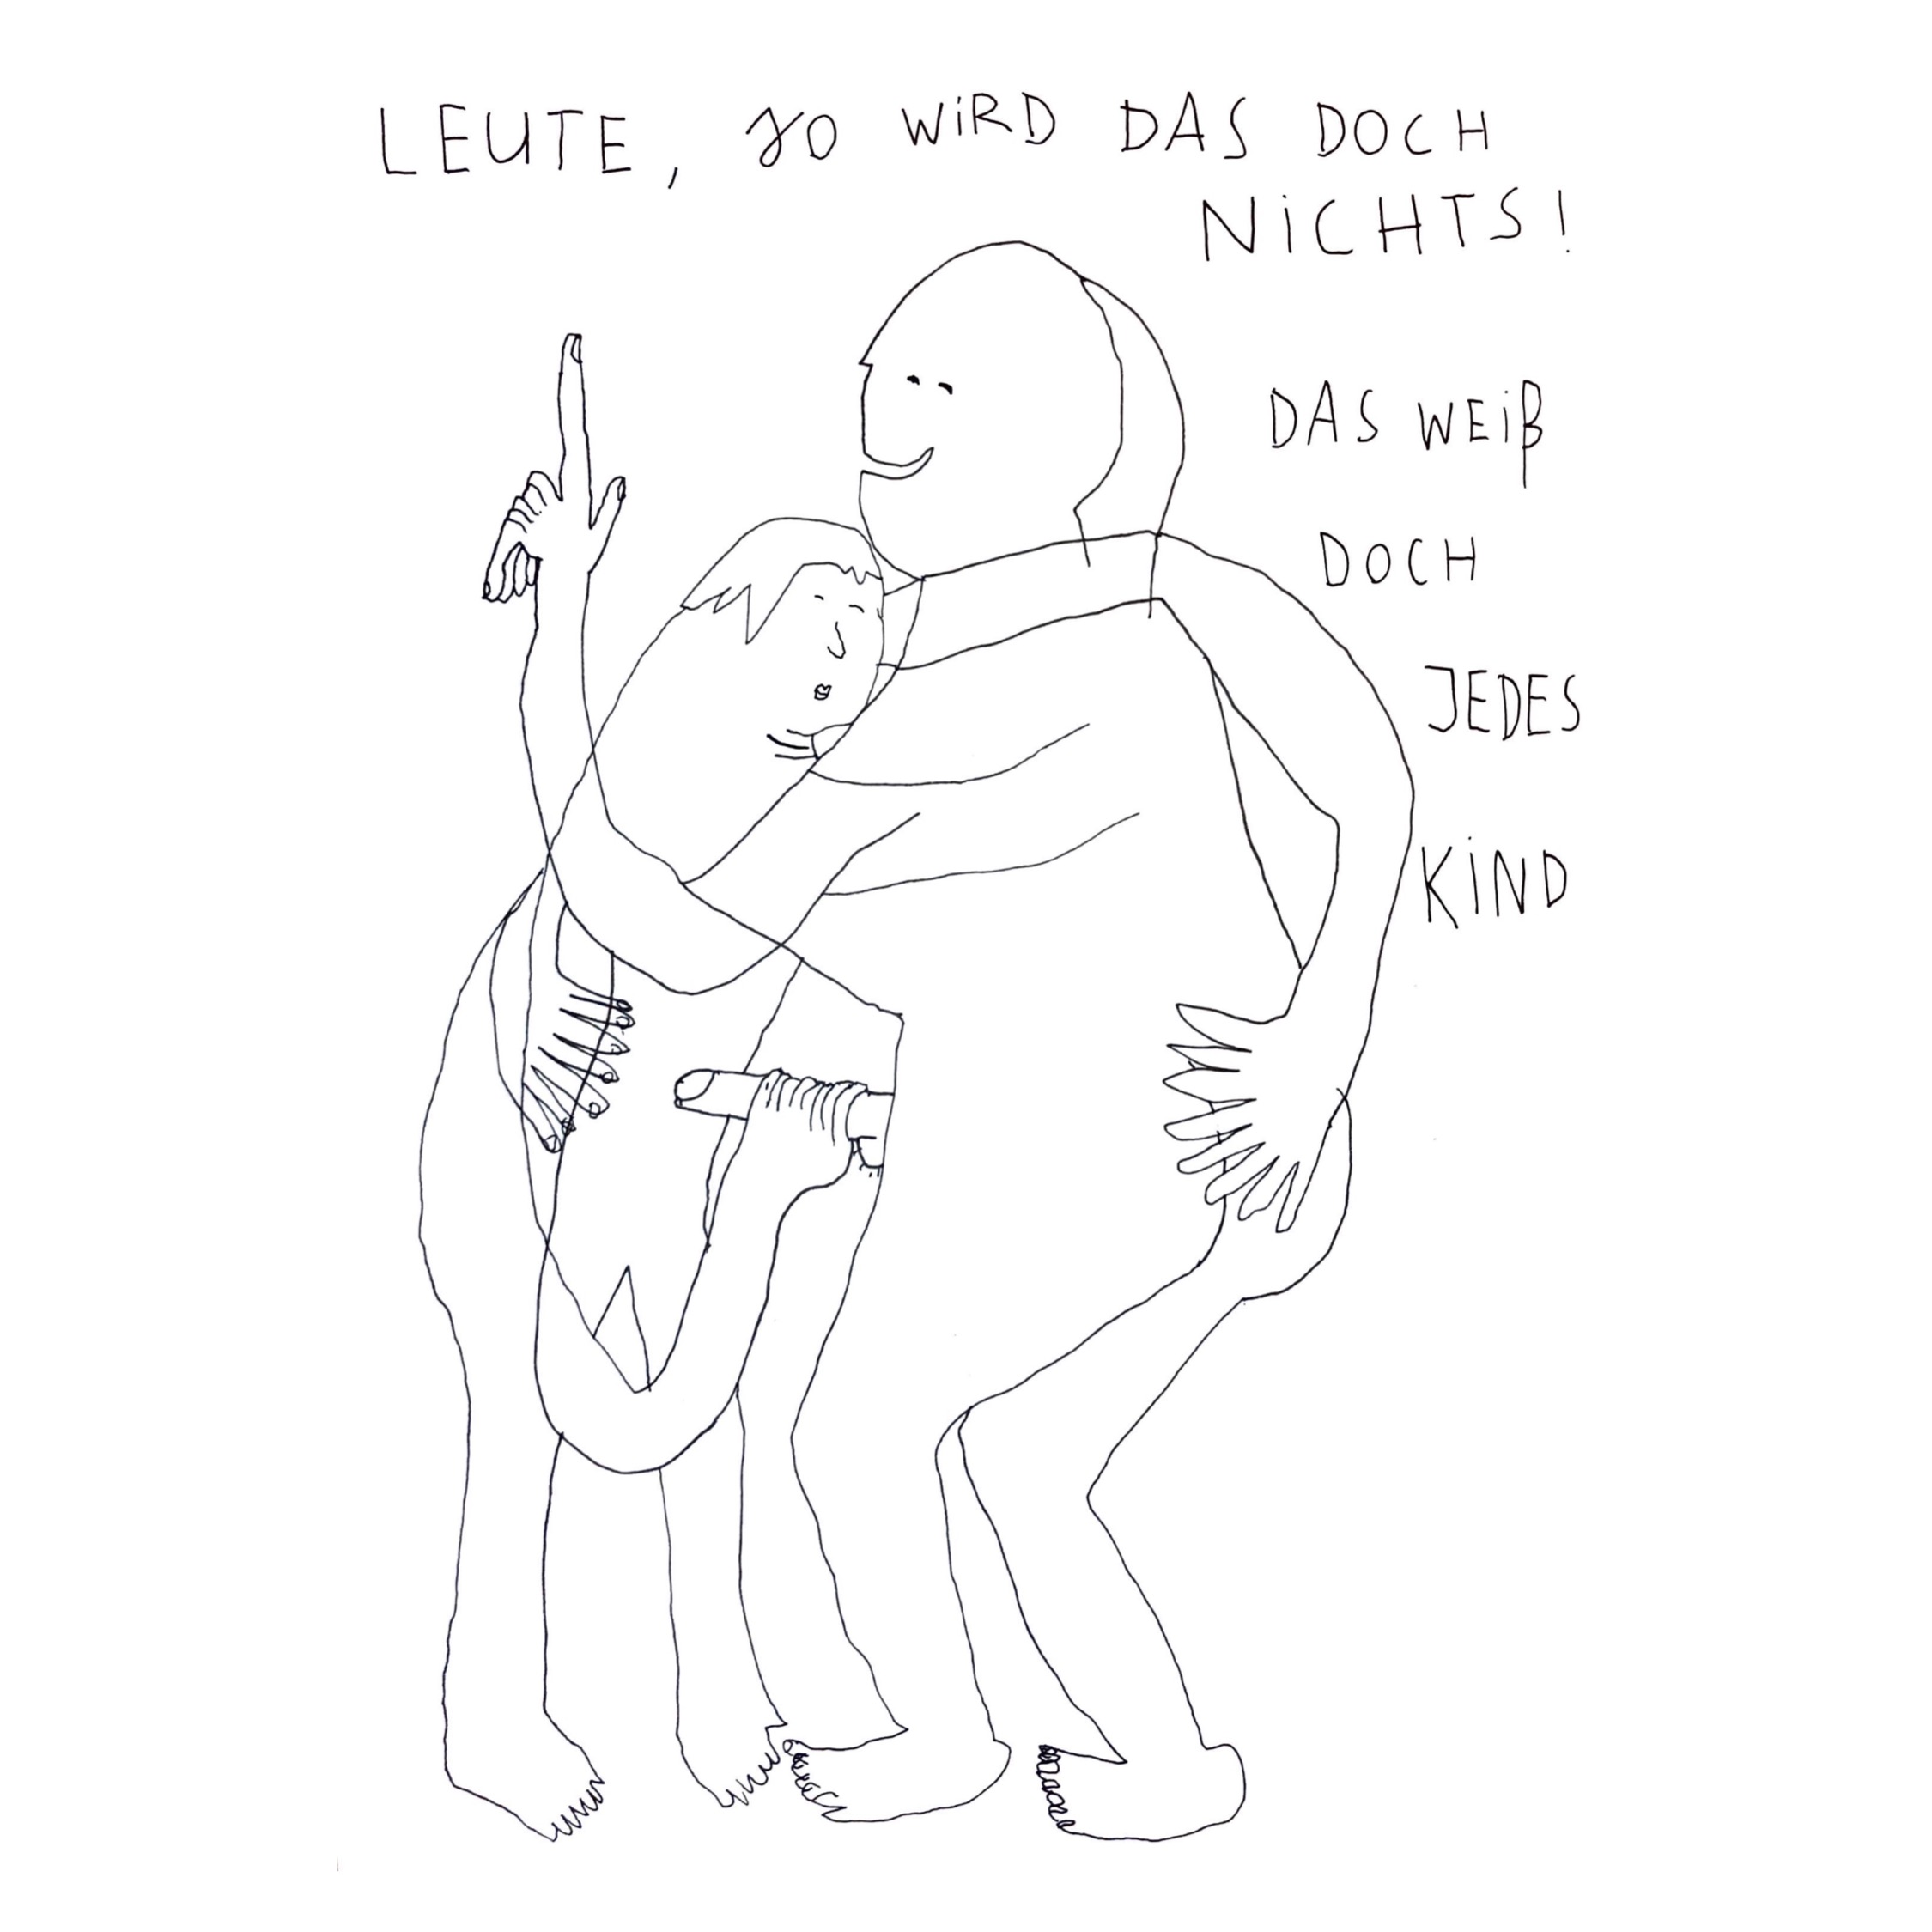 LEUTE, SO WiRD DAS DOCH
NiCHTS!
DAS WEiß
DOCH
JEDES
KiND